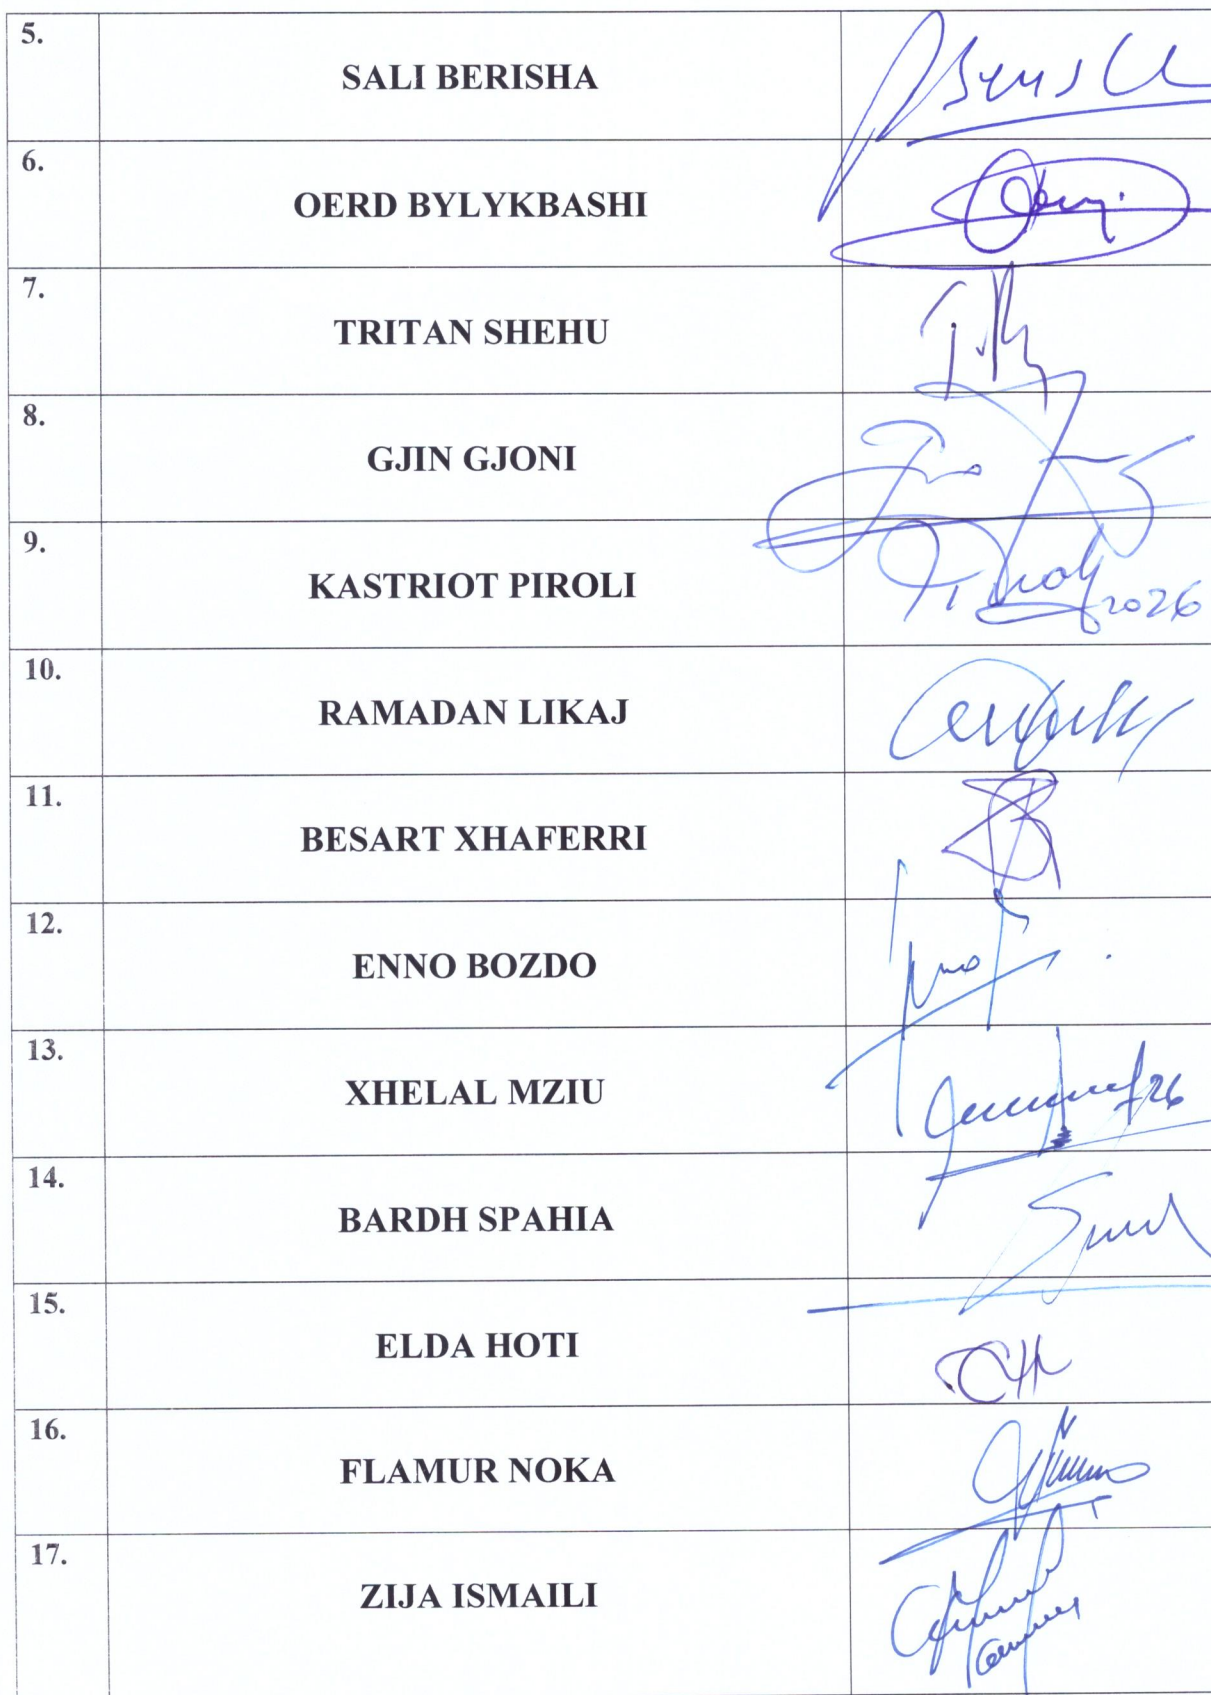 5. SALI BERISHA
6. OERD BYLYKBASHI
7. TRITAN SHEHU
8. GJIN GJONI
9. KASTRIOT PIROLI
2026
10. RAMADAN LIKAJ
11. BESART XHAFERRI
12. ENNO BOZDO
13. XHELAL MZIU
26
14. BARDH SPAHIA
15. ELDA HOTI
16. FLAMUR NOKA
17. ZIJA ISMAILI